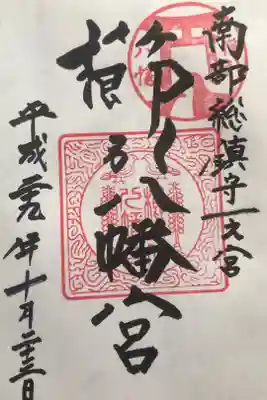 南部総鎮守一之宮
櫛引八幡宮
平成二九年十月二十三日